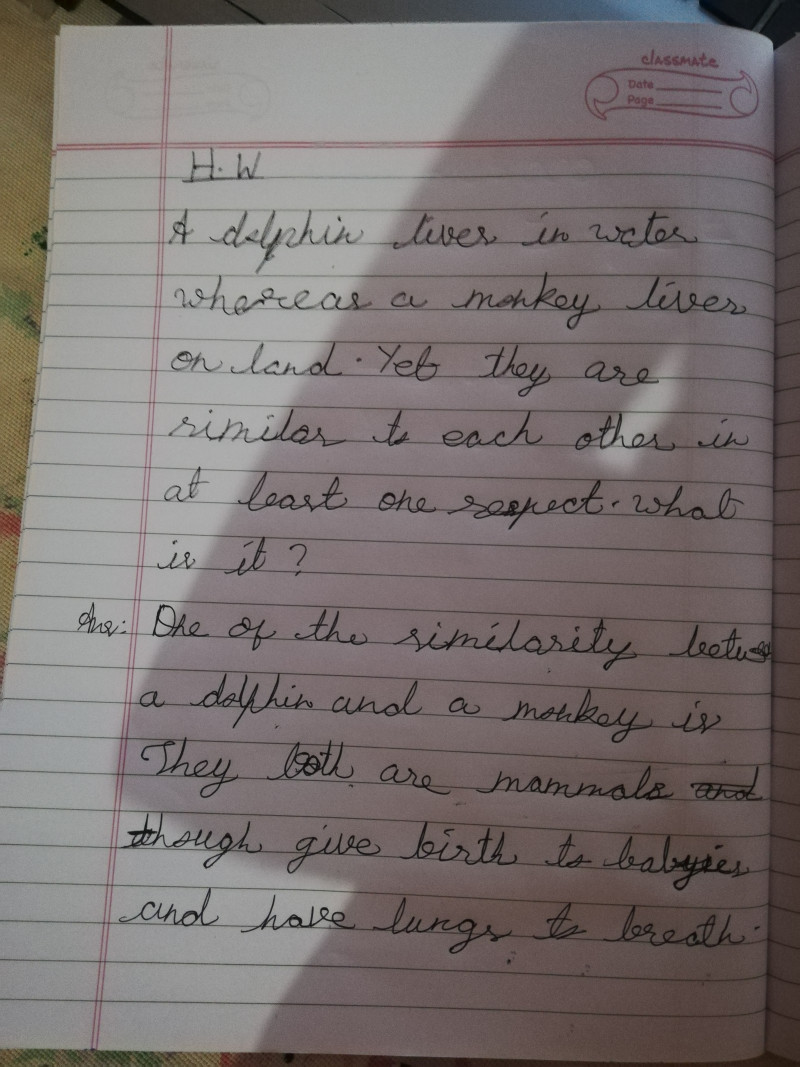 classmate
Date
Page
H.W
A dolphin lives in water
whereas a monkey lives
on land. Yet they are
similar to each other in
at least one respect. What
is it?
Ans: One of the similarity
a dolphin and a monkey is
They both are mammals and
though give birth to babyies
and have lungs to breath.